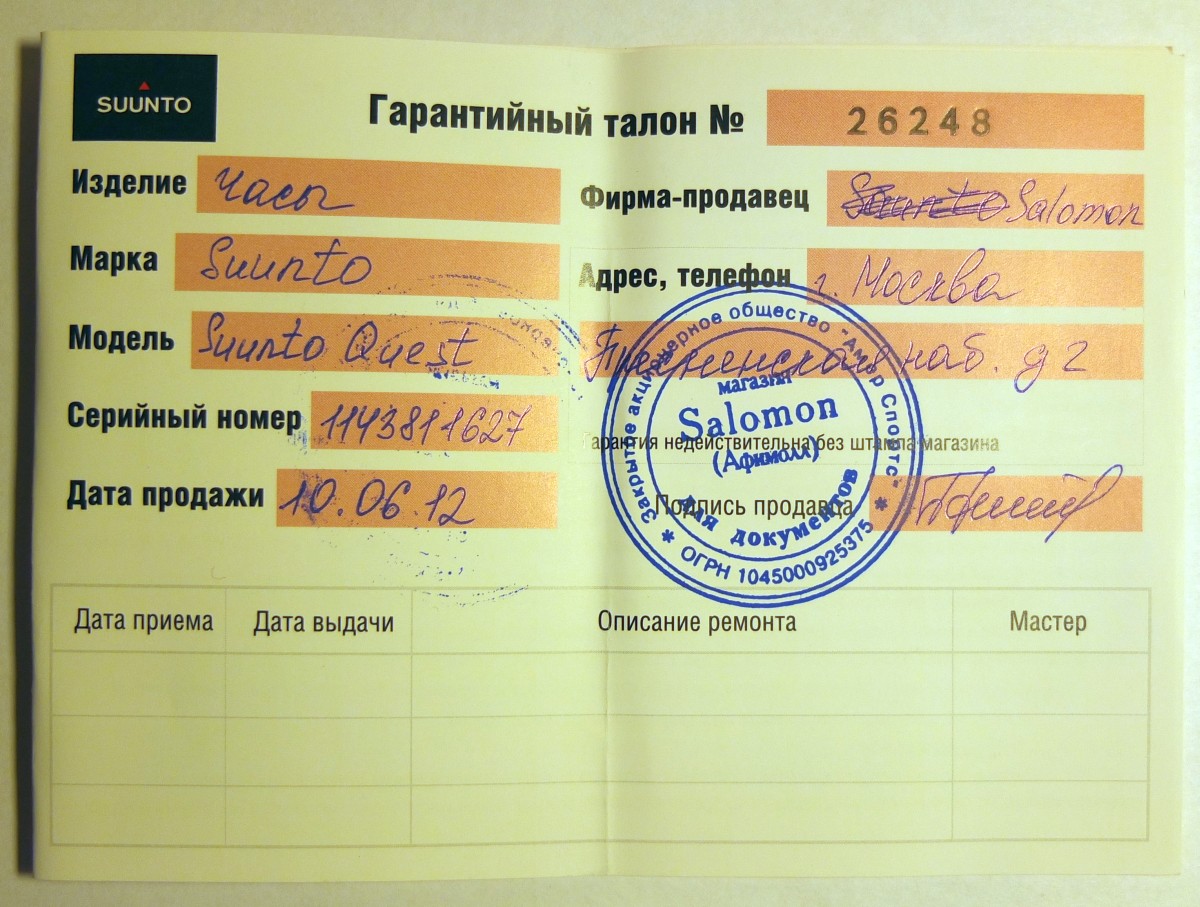 SUUNTO
Гарантийный талон № 26248
Изделие часы
Марка Suunto
Модель Suunto Quest
Серийный номер 1143811627
Дата продажи 10.06.12
Фирма-продавец Suunto Salomon
Адрес, телефон г. Москва
Пресненская наб. д 2
Гарантия недействительна без штампа магазина
Подпись продавца
Закрытое акционерное общество "Амер Спортс"
магазин
Salomon
(Афимолл)
для документов
* ОГРН 1045000925375 *
Дата приема Дата выдачи Описание ремонта Мастер